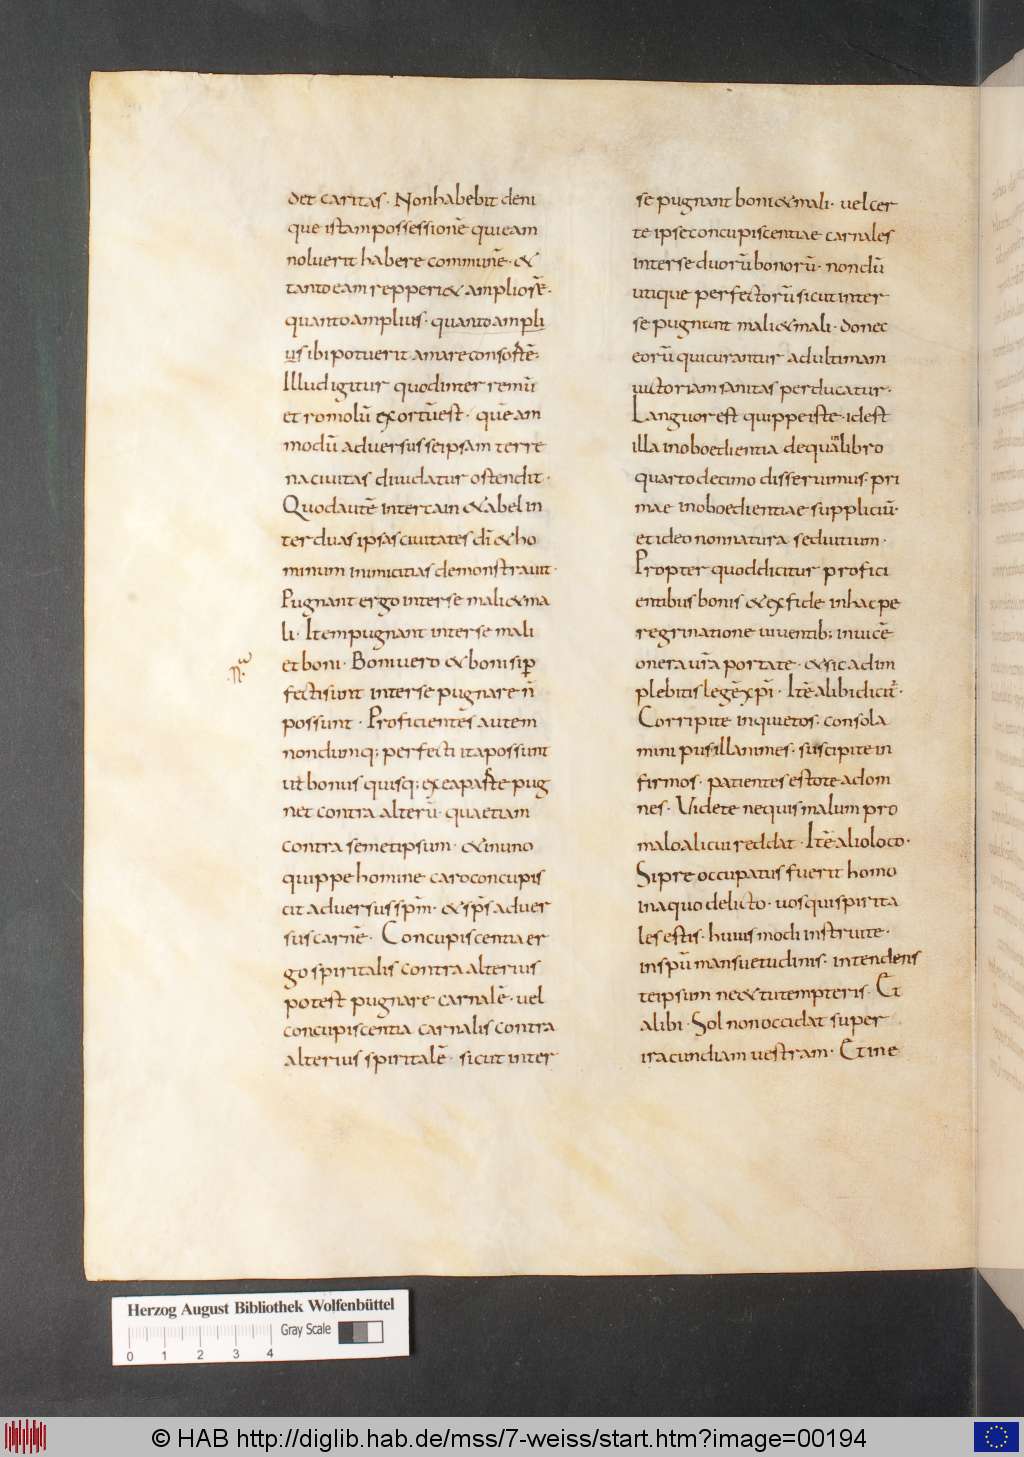 det caritas. Non habebit deni
que istam possessionē qui eam
noluerit habere communē. &
tanto eam repperi& ampliorē.
quanto amplius. quanto ampli
us ibi potuerit amare consortē;
Illud igitur quod inter remū
et romolū exortū est. quē am
modū aduersus se ipsam terre
na ciuitas diuidatur ostendit.
Quod autē inter cain & abel in
ter duas ipsas ciuitates dī & ho
minum inimicitias demonstrauit.
Pugnant ergo inter se mali & ma
li. Item pugnant inter se mali
et boni. Boni uero & boni si ꝑ
fecti sunt inter se pugnare ñ
possunt. Proficientes autem
nondumq; perfecti ita possunt
ut bonus quisq; ex ea parte pug
net contra alterū. qua etiam
contra semetipsum. & in uno
quippe homine caro concupis
cit aduersus spm̄. & sps̄ aduer
sus carnē. Concupiscentia er
go spiritalis contra alterius
potest pugnare carnalē. uel
concupiscentia carnalis contra
alterius spiritalē. sicut inter
se pugnant boni & mali. uel cer
te ipse concupiscentiae carnales
inter se duorū bonorū. nondū
utique perfectorū sicut inter
se pugnant mali & mali. donec
eorū qui curantur ad ultimam
uictoriam sanitas perducatur.
Languor est quippe iste. id est
illa inoboedientia de qua in libro
quarto decimo disseruimus. pri
mae inoboedientiae suppliciū.
et ideo non natura sed uitium.
Propter quod dicitur profici
entibus bonis & ex fide in hac pe
regrinatione uiuentib; inuicē
onera urā portate. & sic adim
plebitis legē xpī. Itē alibi dicit̄.
Corripite inquietos. consola
mini pusillanimes. suscipite in
firmos. patientes estote ad om
nes. Videte ne quis malum pro
malo alicui reddat. Itē alio loco.
Si preoccupatus fuerit homo
in aquo delicto. uos qui spirita
les estis. huius modi instruite.
in spū mansuetudinis. intendens
te ipsum ne & tu tempteris. Et
alibi. Sol non occidat super
iracundiam uestram. Et in e
Herzog August Bibliothek Wolfenbüttel
Gray Scale
0 1 2 3 4
© HAB http://diglib.hab.de/mss/7-weiss/start.htm?image=00194